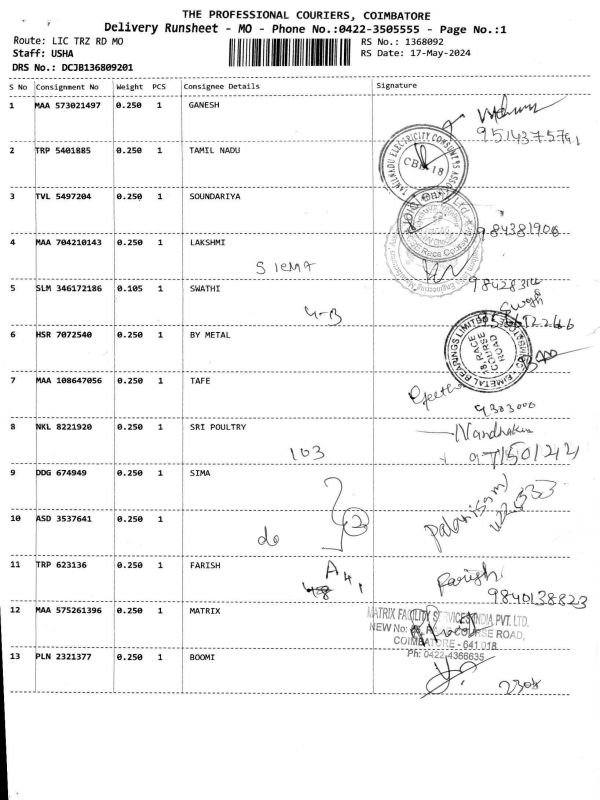 THE PROFESSIONAL COURIERS, COIMBATORE
Delivery Runsheet - MO - Phone No.:0422-3505555 - Page No.:1
Route: LIC TRZ RD MO RS No.: 1368092
Staff: USHA RS Date: 17-May-2024
DRS No.: DCJB136809201
S No Consignment No Weight PCS Consignee Details Signature
1 MAA 573021497 0.250 1 GANESH
9514375791
2 TRP 5401885 0.250 1 TAMIL NADU
TAMILNADU ELECTRICITY CONSUMERS ASSO
CBE-18
3 TVL 5497204 0.250 1 SOUNDARIYA
984381906
4 MAA 704210143 0.250 1 LAKSHMI
SIEMA
5 SLM 346172186 0.105 1 SWATHI
4-B
6 HSR 7072540 0.250 1 BY METAL
BIMETAL BEARINGS LIMITED
18 RACE
COURSE
ROAD
7 MAA 108647056 0.250 1 TAFE
Geetha
9303000
8 NKL 8221920 0.250 1 SRI POULTRY
103
9 DDG 674949 0.250 1 SIMA
10 ASD 3537641 0.250 1
do
2
11 TRP 623136 0.250 1 FARISH
Farish
9840138823
12 MAA 575261396 0.250 1 MATRIX
MATRIX FACILITY SERVICES INDIA PVT. LTD.
NEW No: RACE COURSE ROAD,
COIMBATORE - 641 018.
Ph: 0422-4366635
13 PLN 2321377 0.250 1 BOOMI
2308